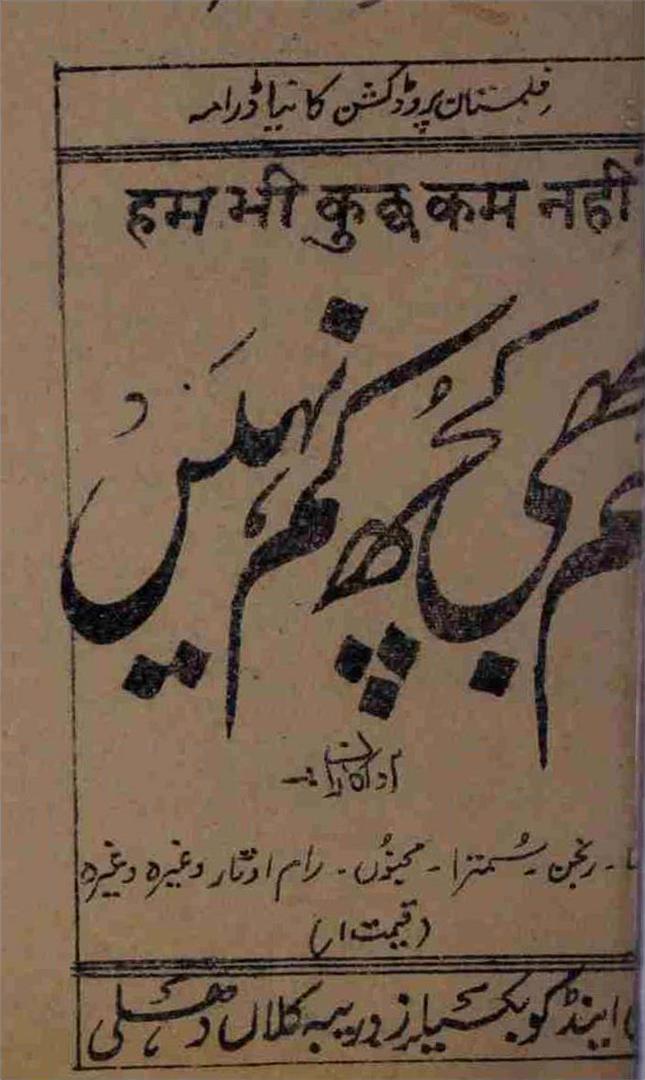 فلمستان پروڈکشن کا نیا ڈرامہ
हम भी कुछ कम नहीं
ہم بھی کچھ کم نہیں
اداکاران :-
رنجن - سُمترا - مجنوں - رام اوتار وغیرہ وغیرہ
(قیمت ار)
اینڈ کو بکسیلرز دریبہ کلاں دھلی